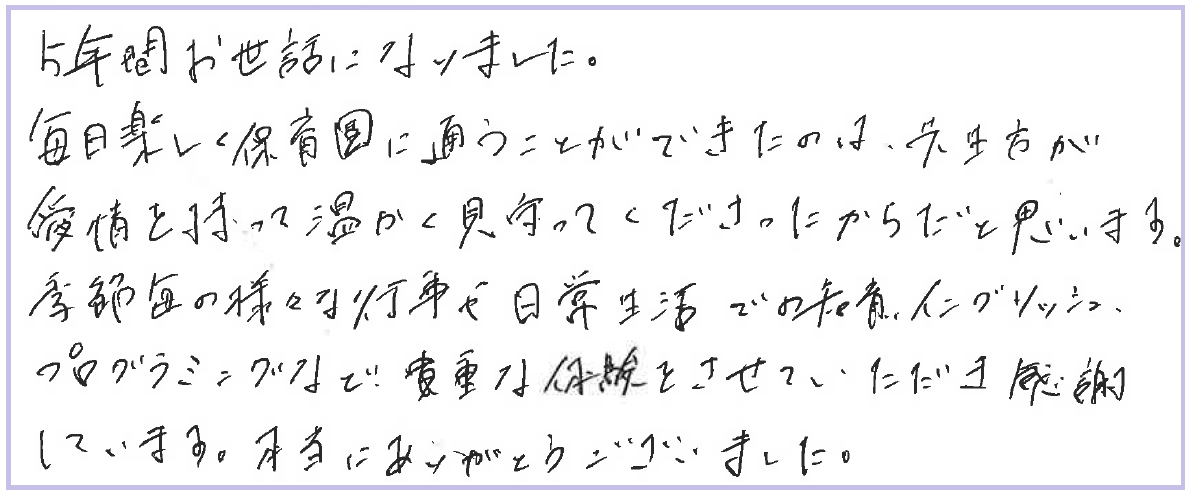 5年間お世話になりました。
毎日楽しく保育園に通うことができたのは、先生方が
愛情を持って温かく見守ってくださったからだと思います。
季節毎の様々な行事や日常生活での知育、イングリッシュ、
プログラミングなど貴重な体験をさせていただき感謝
しています。本当にありがとうございました。